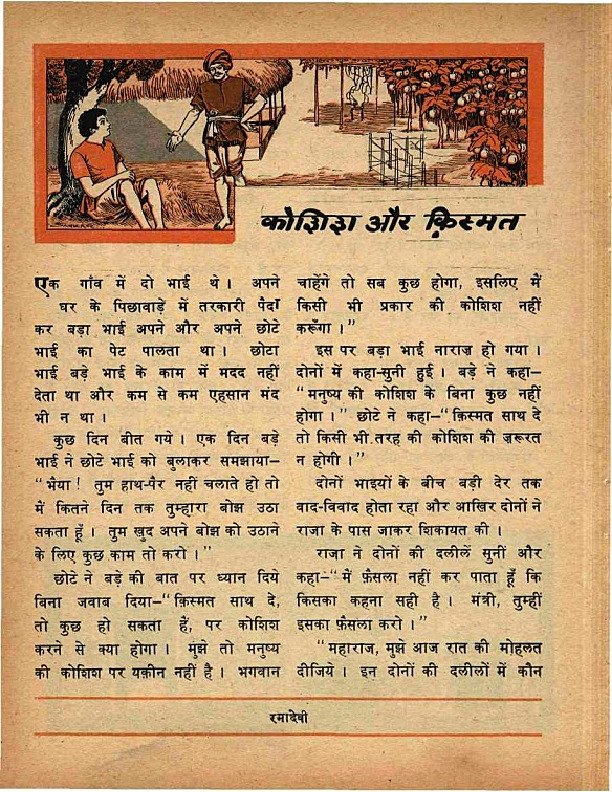 कोशिश और क़िस्मत
एक गाँव में दो भाई थे। अपने
घर के पिछावाड़ें में तरकारी पैदा
कर बड़ा भाई अपने और अपने छोटे
भाई का पेट पालता था। छोटा
भाई बड़े भाई के काम में मदद नहीं
देता था और कम से कम एहसान मंद
भी न था।
कुछ दिन बीत गये। एक दिन बड़े
भाई ने छोटे भाई को बुलाकर समझाया–
“भैया! तुम हाथ-पैर नहीं चलाते हो तो
में कितने दिन तक तुम्हारा बोझ उठा
सकता हूँ। तुम खुद अपने बोझ को उठाने
के लिए कुछ काम तो करो।”
छोटे ने बड़े की बात पर ध्यान दिये
बिना जवाब दिया–“क़िस्मत साथ दे,
तो कुछ हो सकता हैं, पर कोशिश
करने से क्या होगा। मुझे तो मनुष्य
की कोशिश पर यक़ीन नहीं है। भगवान
चाहेंगे तो सब कुछ होगा, इसलिए मैं
किसी भी प्रकार की कोशिश नहीं
करूँगा।”
इस पर बड़ा भाई नाराज हो गया।
दोनों में कहा-सुनी हुई। बड़े ने कहा–
“मनुष्य की कोशिश के बिना कुछ नहीं
होगा।” छोटे ने कहा–“क़िस्मत साथ दे
तो किसी भी तरह की कोशिश की ज़रूरत
न होगी।”
दोनों भाइयों के बीच बड़ी देर तक
वाद-विवाद होता रहा और आखिर दोनों ने
राजा के पास जाकर शिकायत की।
राजा ने दोनों की दलीलें सुनीं और
कहा–“में फ़ैसला नहीं कर पाता हूँ कि
किसका कहना सही है। मंत्री, तुम्हीं
इसका फ़ैसला करो।”
“महाराज, मुझे आज रात की मोहलत
दीजिये। इन दोनों की दलीलों में कौन
रमादेवी